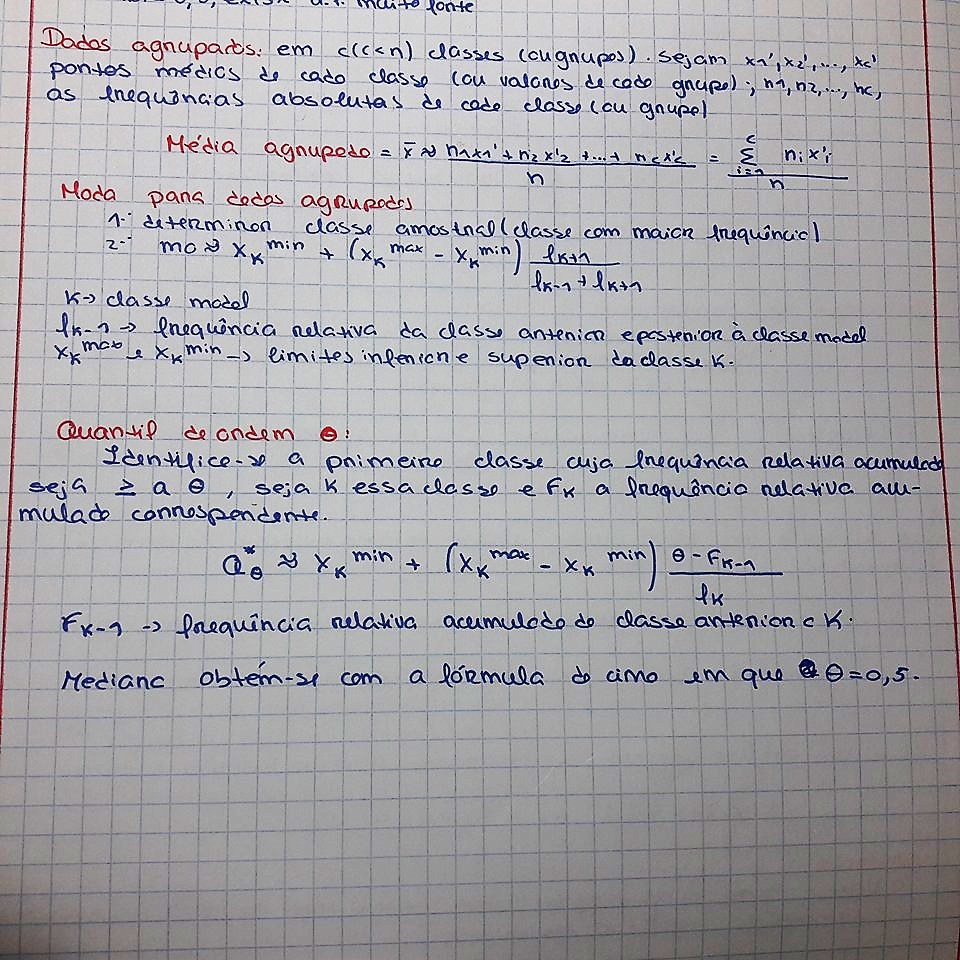 0,8, existe a.f. muito forte
Dados agrupados: em c(c<n) classes (ou grupos). Sejam x1', x2', ..., xc'
pontos médios de cada classe (ou valores de cada grupo); n1, n2, ..., nc,
as frequências absolutas de cada classe (ou grupo)
Média agrupada = x̄ ≈ (n1x1' + n2x'2 + ... + ncx'c)/n = (Σ_{i=1}^{c} nix'i)/n
Moda para dados agrupados
1º: determinar classe amostral (classe com maior frequência)
2º: mo ≈ xK^min + (xK^max - xK^min) fK+1/(fK-1 + fK+1)
K → classe modal
fK-1 → frequência relativa da classe anterior e posterior à classe modal
xK^max e xK^min → limites inferior e superior da classe K.
Quantil de ordem θ:
Identifica-se a primeira classe cuja frequência relativa acumulada
seja ≥ a θ, seja K essa classe e FK a frequência relativa acu-
mulada correspondente.
Q*θ ≈ xK^min + (xK^max - xK^min) (θ - FK-1)/fK
FK-1 → frequência relativa acumulada da classe anterior a K.
Mediana obtém-se com a fórmula de cima em que θ=0,5.